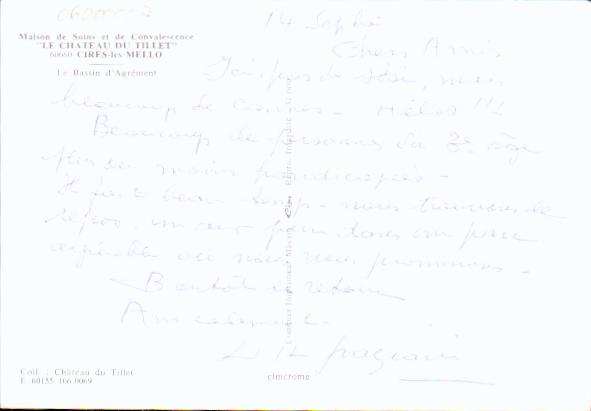 Maison de Soins et de Convalescence
"LE CHATEAU DU TILLET"
60660 CIRES-les-MELLO
Le Bassin d'Agrément
14 Septbre
Chers Amis
J'ai pas de ski, mais
beaucoup de cannes - Hélas !!!
Beaucoup de personnes du 3e âge
plus ou moins handicapées -
Il fait beau temps - nous trouvons le
repos, un air pur dans un parc
agréable où nous nous promenons -
Bientôt le retour
Amicalement -
Combier Imprimeur Macon Cim Repro. Interdite
Coll. : Château du Tillet
E 60155 106 0069
cimcrome